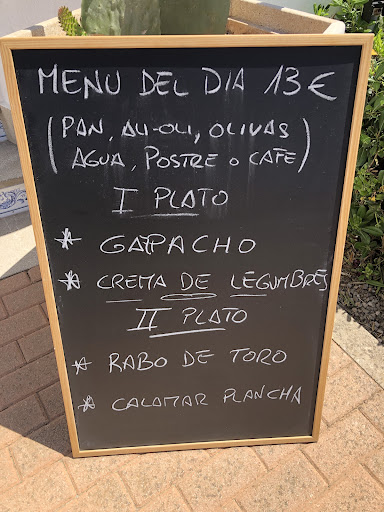 MENU DEL DIA 13€
(PAN, ALI-OLI, OLIVAS
AGUA, POSTRE O CAFE)
I PLATO
* GAPACHO
* CREMA DE LEGUMBRES
II PLATO
* RABO DE TORO
* CALAMAR PLANCHA